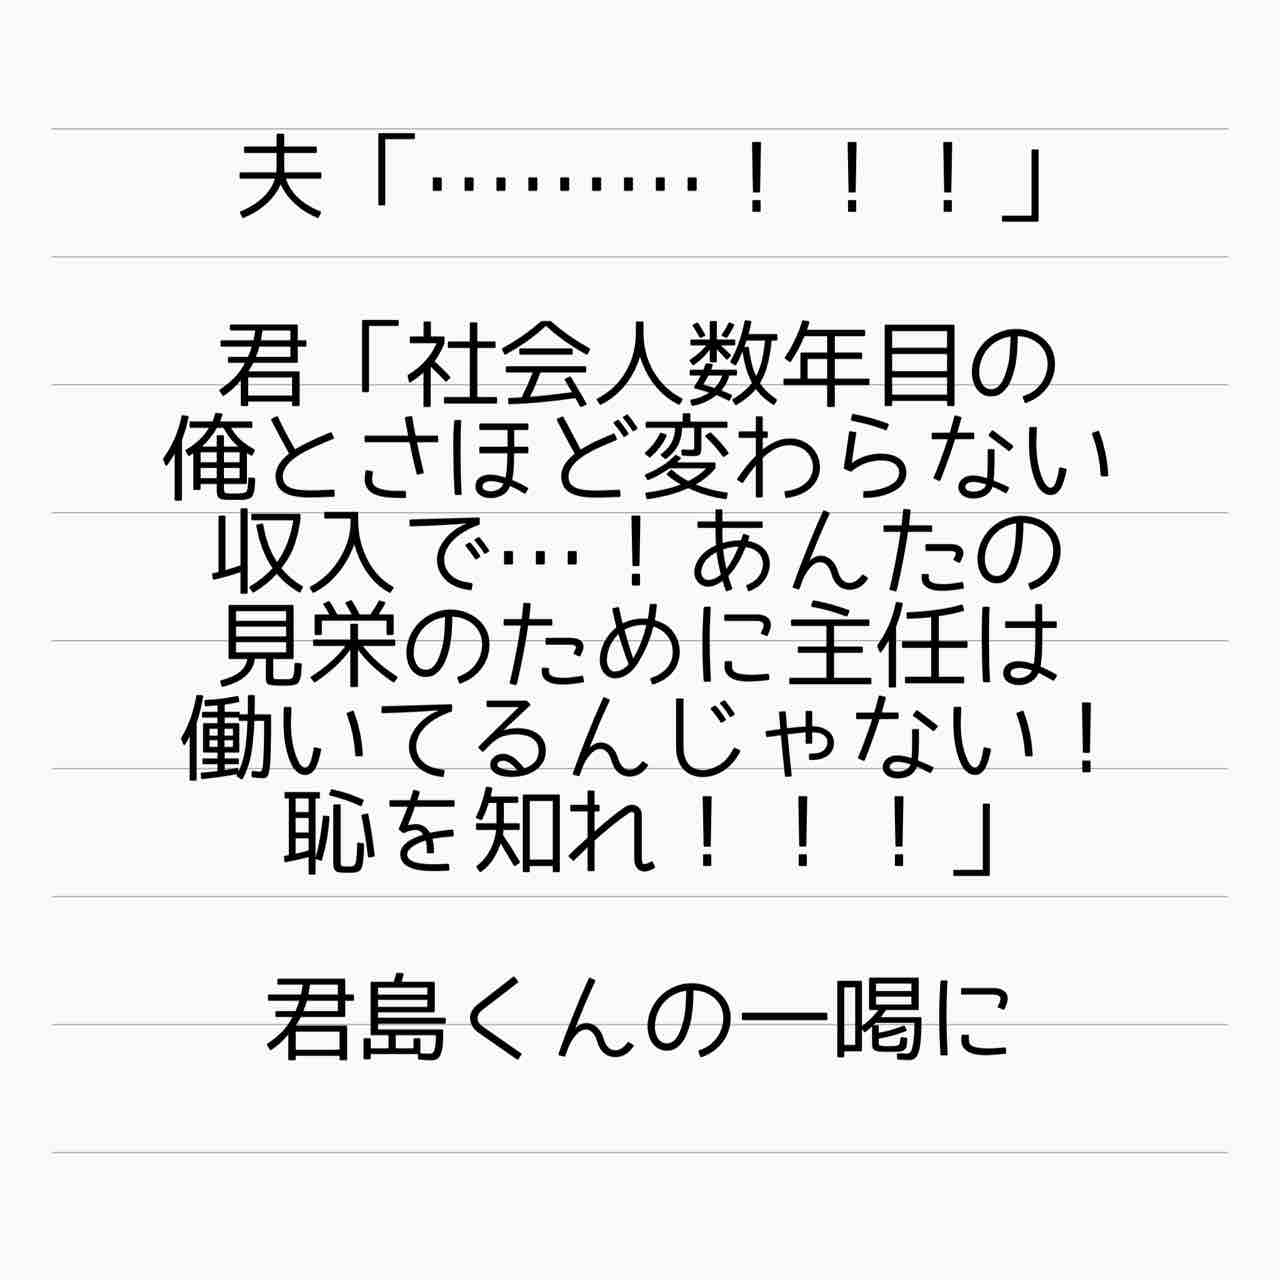 夫「………！！！」
君「社会人数年目の
俺とさほど変わらない
収入で…！あんたの
見栄のために主任は
働いてるんじゃない！
恥を知れ！！！」
君島くんの一喝に